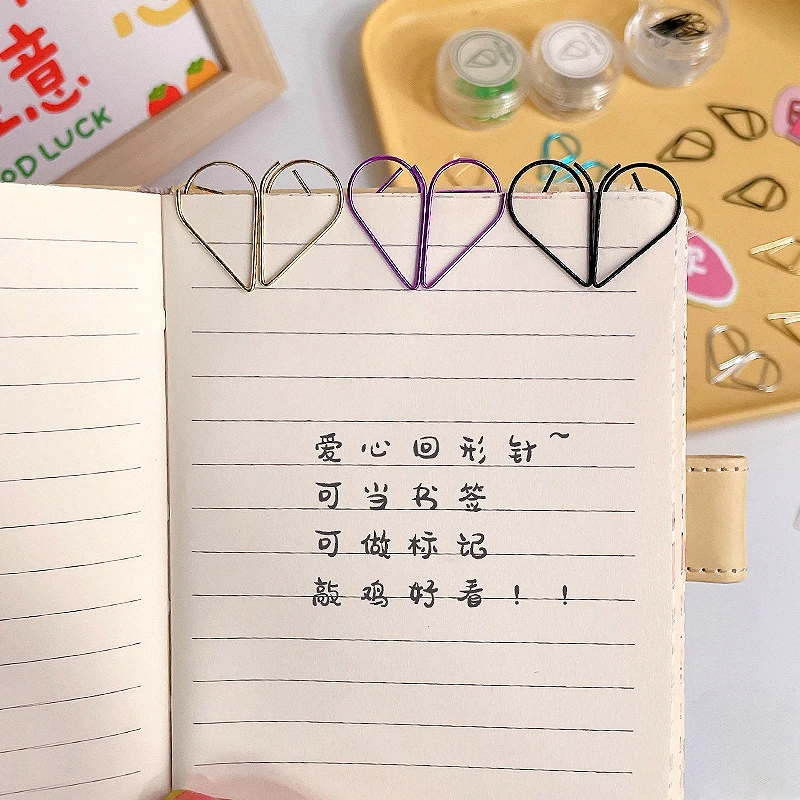 意
OD LUCK
爱心回形针~
可当书签
可做标记
敲鸡好看！！